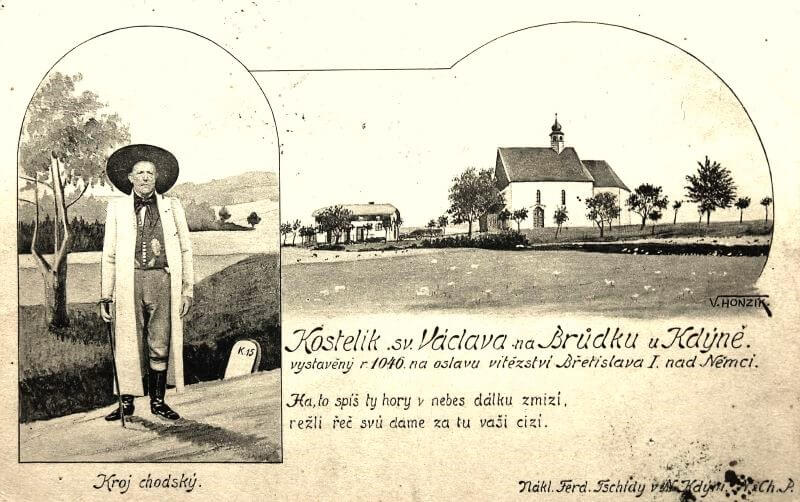 K.15
V. HONZIK.
Kostelík sv. Václava na Brůdku u Kdýně.
vystavěný r. 1046. na oslavu vítězství Břetislava I. nad Němci.
Ha, to spíš ty hory v nebes dálku zmizí,
režli řeč svů dame za tu vaši cizí.
Kroj chodský.
Nákl. Ferd. Tschídy v N. Kdýni. Ch. P.